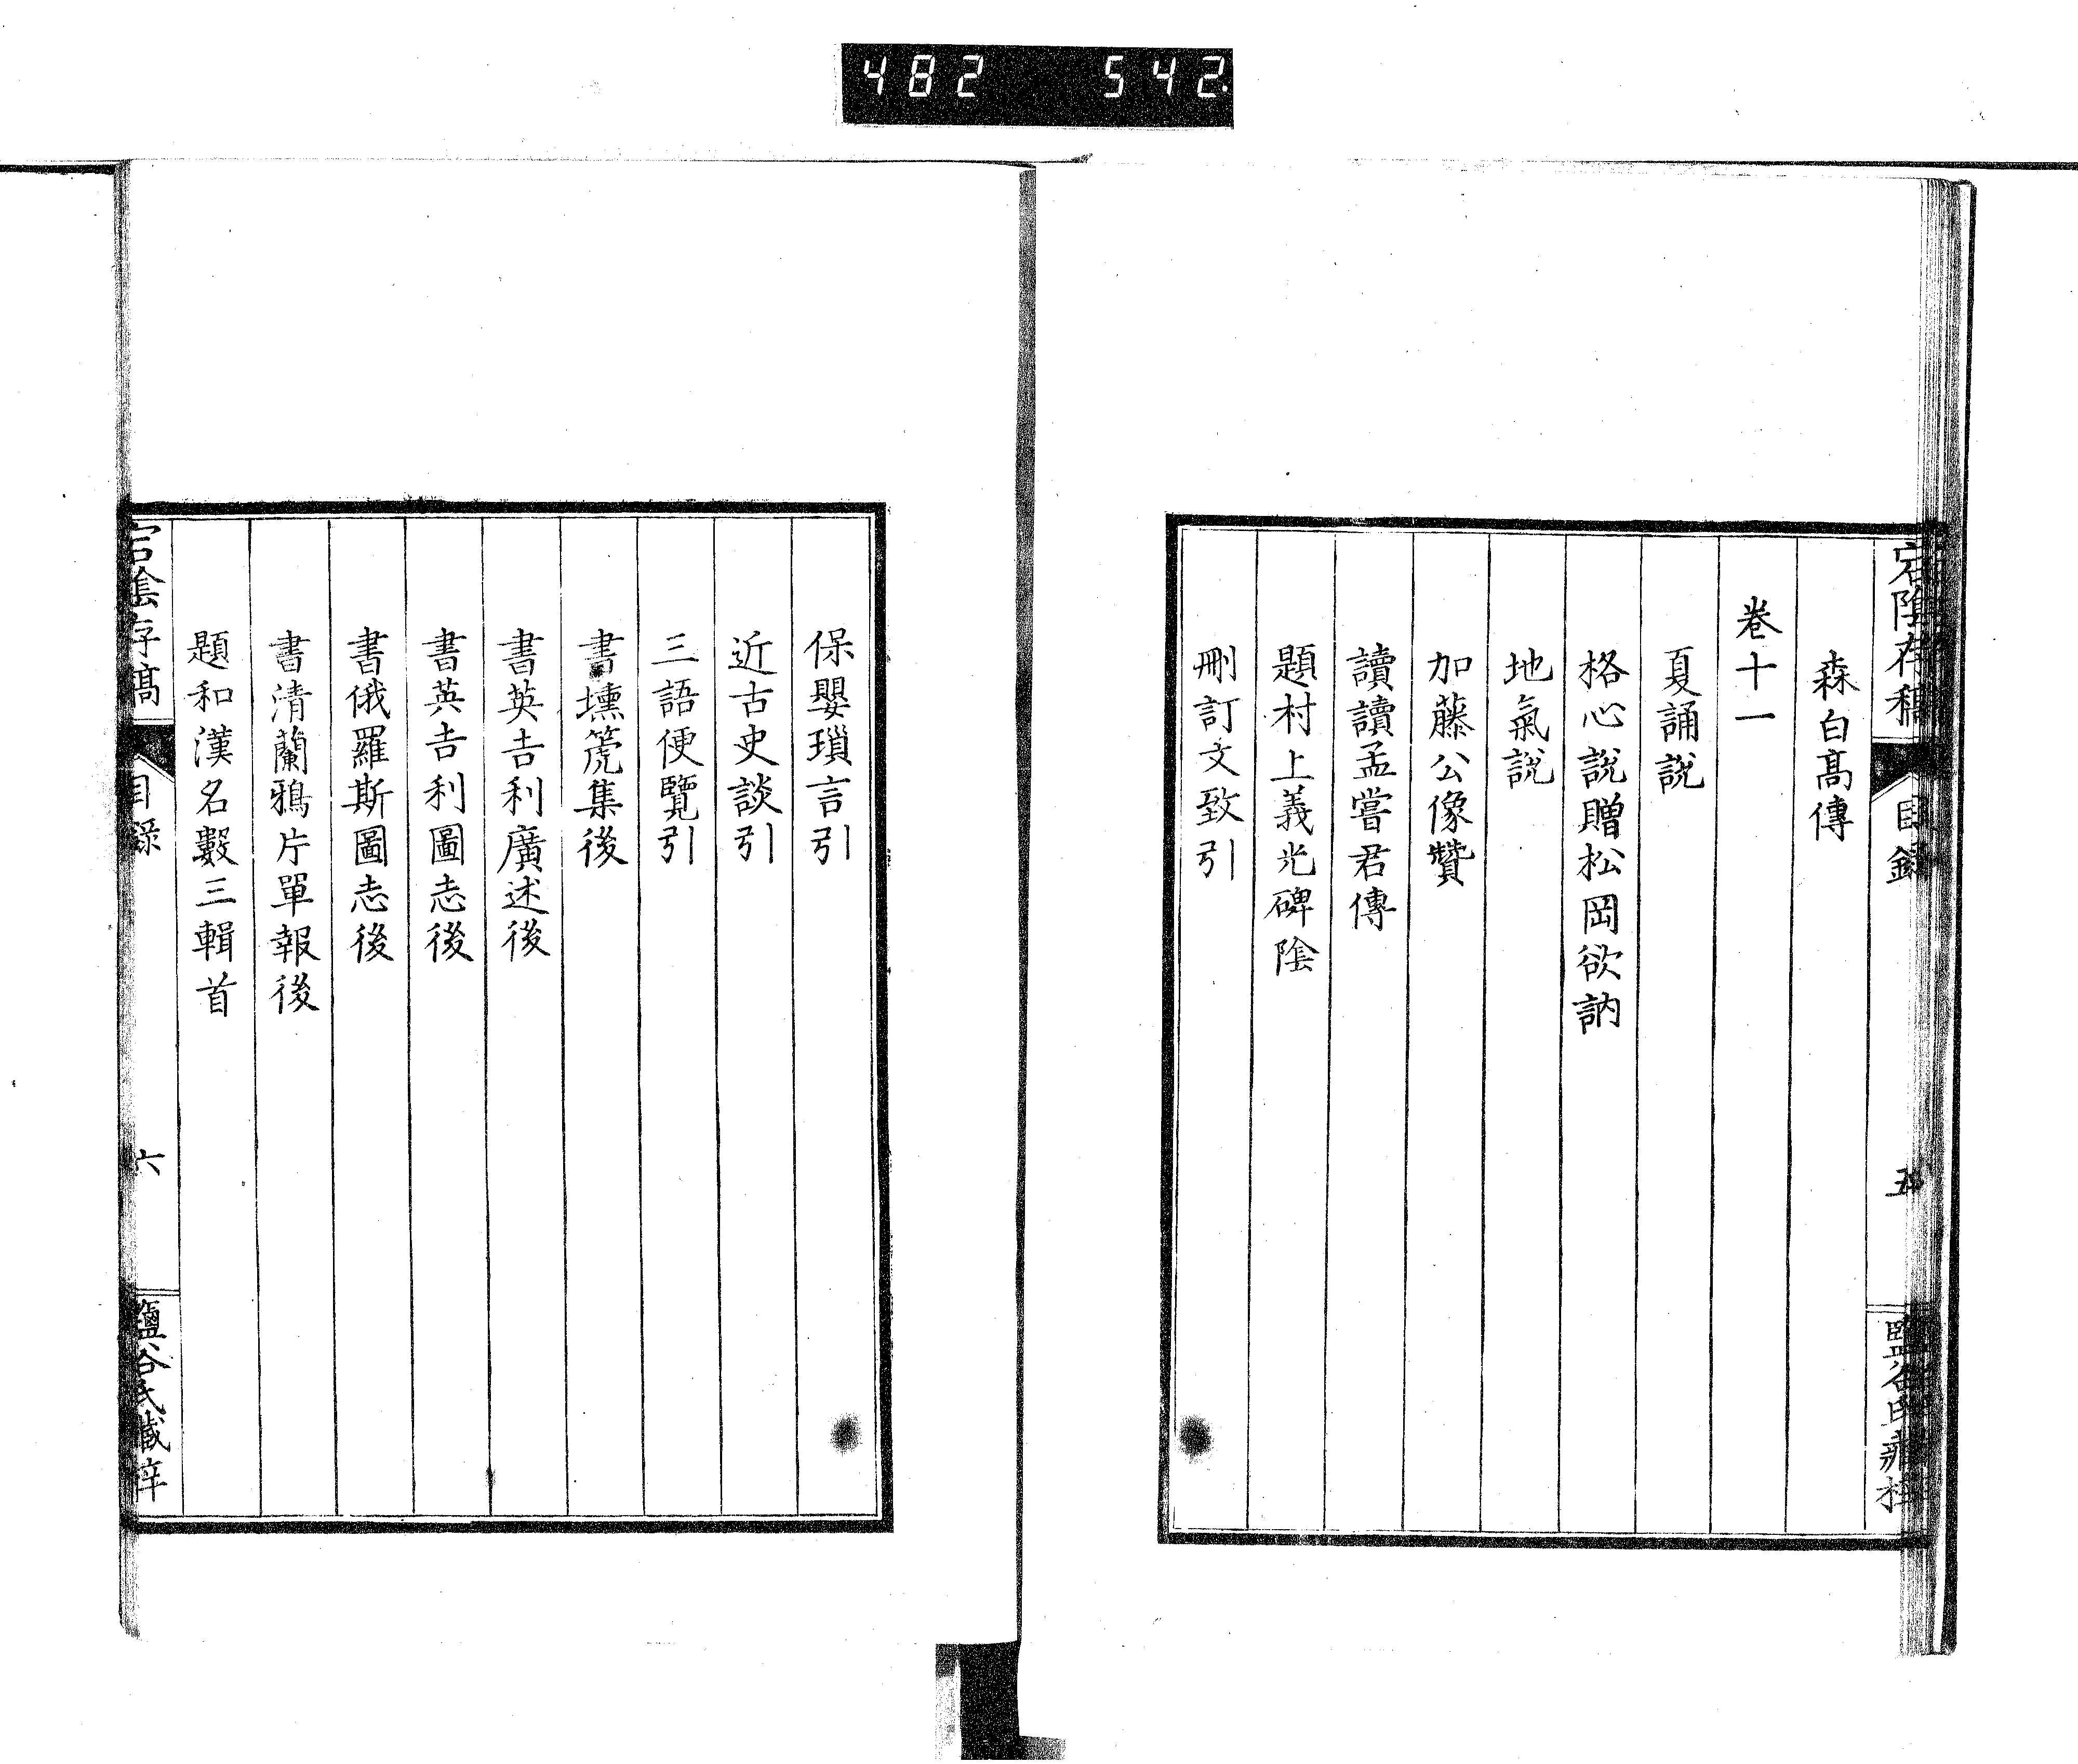 482 542.
宕陰存稿 目錄 五
森白髙傳
卷十一
夏誦說
格心說贈松岡欲訥
地氣說
加藤公像贊
讀讀孟嘗君傳
題村上義光碑陰
刪訂文致引
保嬰瑣言引
近古史談引
三語便覽引
書壎篪集後
書英吉利廣述後
書英吉利圖志後
書俄羅斯圖志後
書清蘭鴉片單報後
題和漢名數三輯首
宕陰存稿 目錄 六 鹽谷氏藏梓